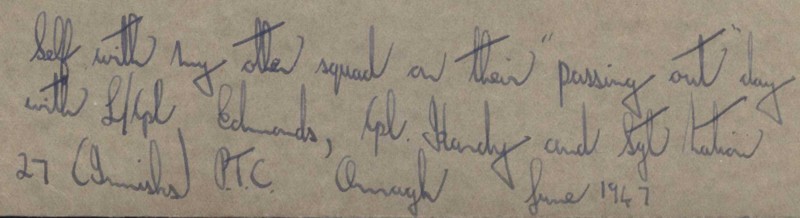 Self with my other squad on their "passing out" day
with L/Cpl Edmonds, Cpl. Handy and Sgt
27 (Innisks) P.T.C. Omagh June 1947